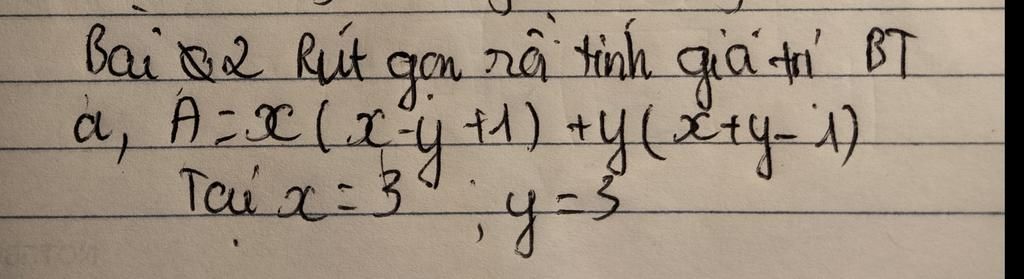 Bài 2 Rút gọn rồi tính giá trị BT
a, A = x(x-y+1) + y(x+y-1)
Tại x = 3 ; y = 3